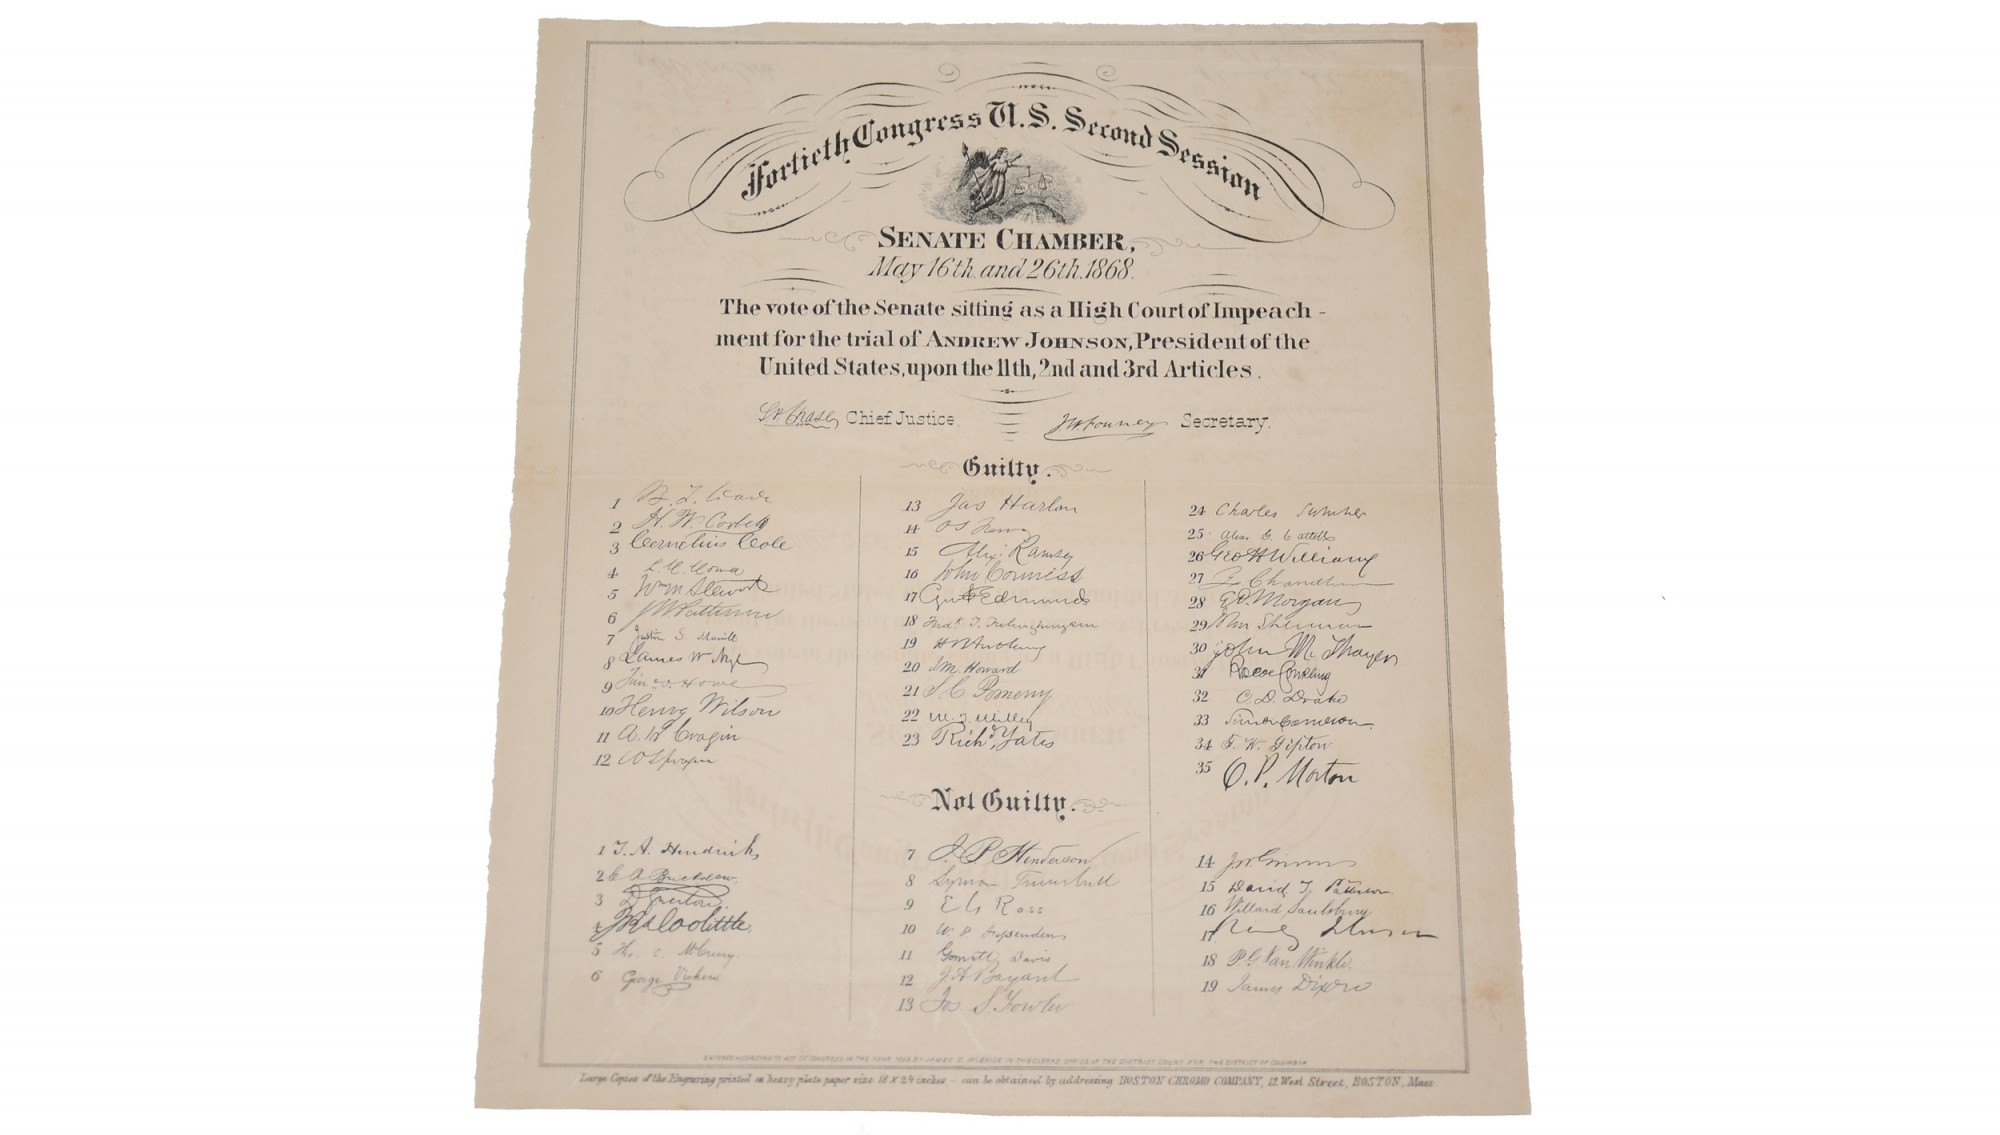 Fortieth Congress U.S. Second Session
SENATE CHAMBER,
May 16th. and 26th. 1868.
The vote of the Senate sitting as a High Court of Impeach-
ment for the trial of ANDREW JOHNSON, President of the
United States, upon the 11th, 2nd and 3rd Articles.
S P Chase Chief Justice.
J W Forney Secretary.
Guilty.
1 B. F. Wade
2 H. W. Corbett
3 Cornelius Cole
4
5 Wm M Stewart
6 J W Patterson
7 Justin S. Morrill
8 James W Nye
9 Howe
10 Henry Wilson
11 A. H Cragin
12 W Sprague
13 Jas Harlan
14 O S Ferry
15 Alex. Ramsey
16 John Conness
17 Geo F Edmunds
18 Fredk T. Frelinghuysen
19 H B Anthony
20 J M. Howard
21 S. C Pomeroy
22 W. T. Willey
23 Richd Yates
24 Charles Sumner
25 Alex G. Cattell
26 Geo H Williams
27 Z Chandler
28 E D. Morgan
29 John Sherman
30 John M. Thayer
31 Roscoe Conkling
32 C. D. Drake
33 Simon Cameron
34 T. W. Tipton
35 O. P. Morton
Not Guilty.
1 T. A. Hendricks
2 C A Buckalew.
3 D S Norton
4 J R Doolittle,
5 Tho. C. McCreery
6 George Vickers
7 J. B Henderson
8 Lyman Trumbull
9 E G Ross
10 W. P. Fessenden
11 Garrett Davis
12 J A Bayard
13 Jos. S. Fowler
14 J W Grimes
15 David T. Patterson
16 Willard Saulsbury
17 Reverdy Johnson
18 P. G Van Winkle.
19 James Dixon
ENTERED ACCORDING TO ACT OF CONGRESS IN THE YEAR 1868 BY JAMES D. MCBRIDE IN THE CLERKS OFFICE OF THE DISTRICT COURT FOR THE DISTRICT OF COLUMBIA
Large Copies of the Engraving printed on heavy plate paper size 18 X 24 inches - can be obtained by addressing BOSTON CHROMO COMPANY, 12 West Street, BOSTON, Mass.